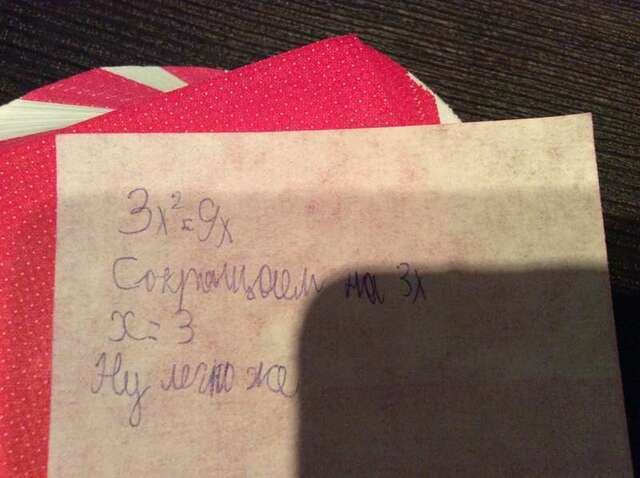 3x²=9x
Сокращаем на 3x
x=3
Ну легко же